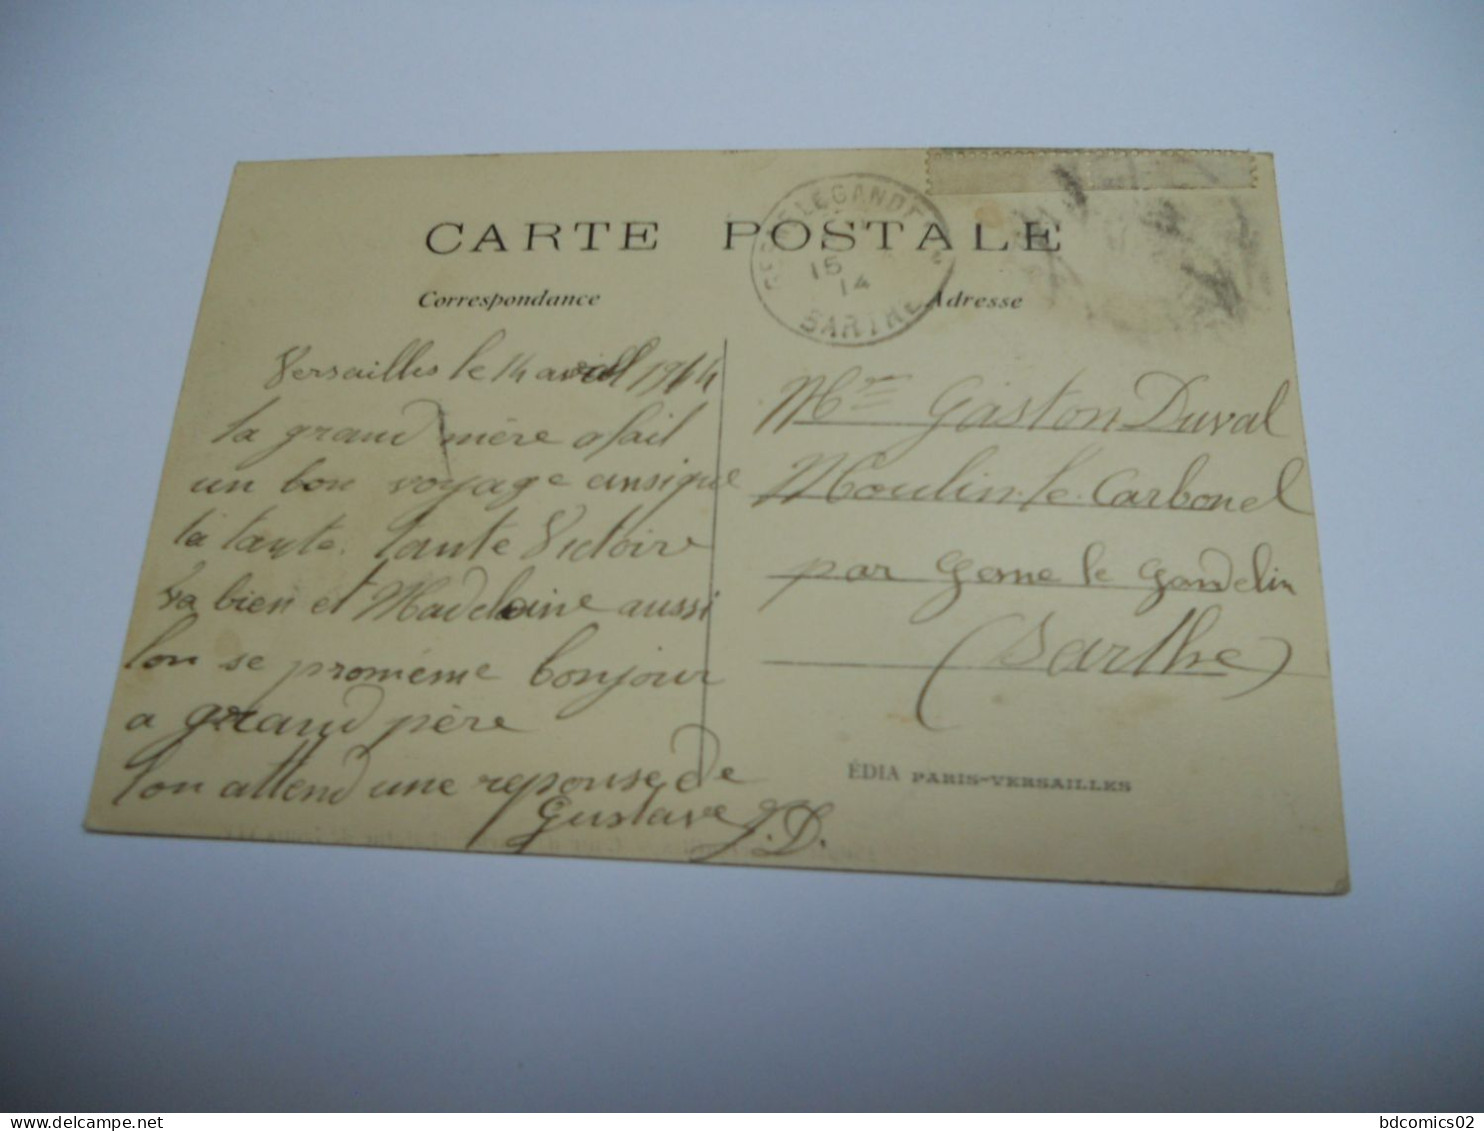 CARTE POSTALE
Correspondance
Adresse
15
14
SARTHE
Versailles le 14 avril 1914
la grand mère a fait
un bon voyage ansique
la tante. tante Victoire
va bien et Madeleine aussi
lon se promème bonjour
a grand père
lon attend une reponse de
Gustave J.D.
Mr Gaston Duval
Moulin le Carbonel
par Gesne le Gandelin
(Sarthe)
ÉDIA PARIS-VERSAILLES
bdcomics02